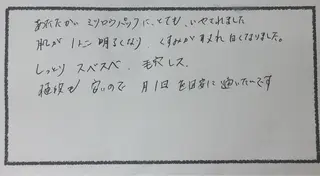 あたたかい ミツロウパックに、とても、いやされました
肌が 1トーン 明るくなり、くすみがとれ 白くなりました。
しっとり スベスベ、毛穴レス。
値段も 安いので 月1回 を目安に 通いたいです